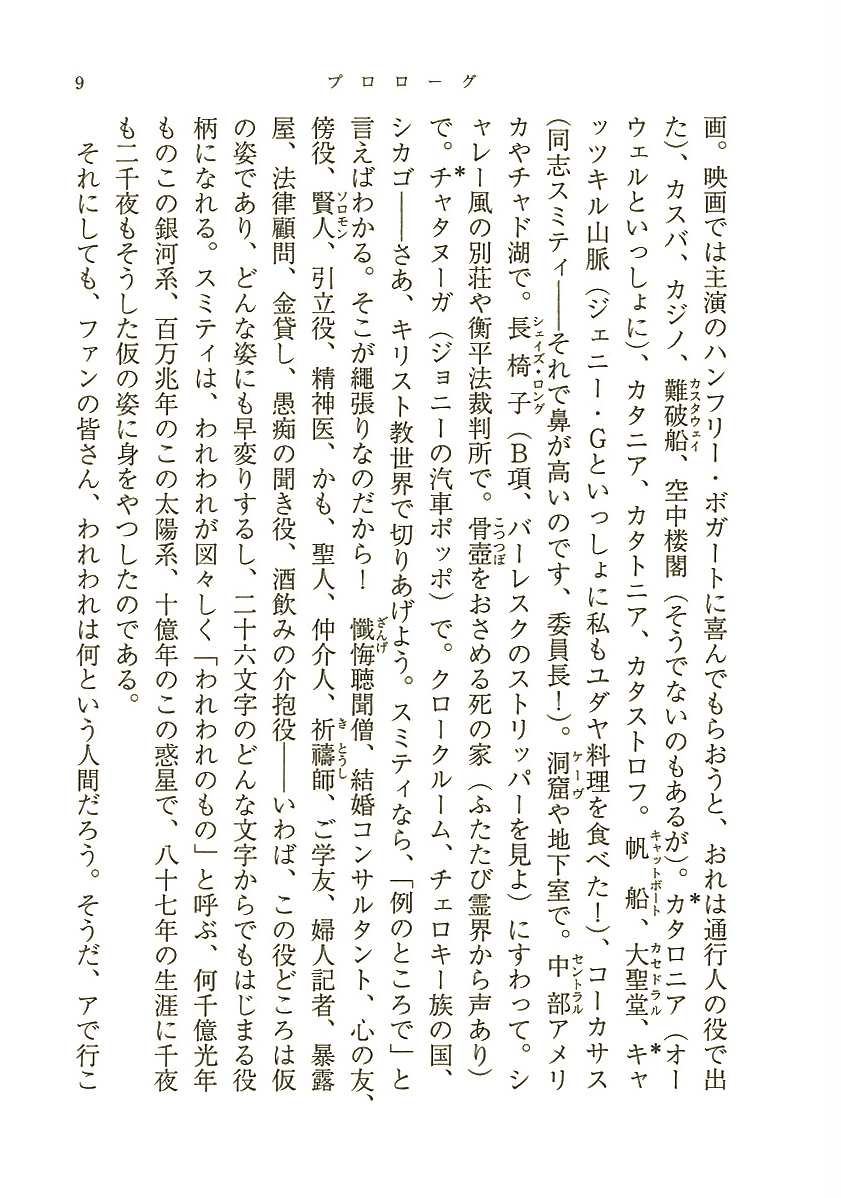 9
プロローグ
画。映画では主演のハンフリー・ボガートに喜んでもらおうと、おれは通行人の役で出
た)、カスバ、カジノ、難破船、空中楼閣(そうでないのもあるが)。カタロニア(オー
ウェルといっしょに)、カタニア、カタトニア、カタストロフ。帆船、大聖堂、キャ
ッツキル山脈(ジェニー・Gといっしょに私もユダヤ料理を食べた!)、コーカサス
(同志スミティ――それで鼻が高いのです、委員長!)。洞窟や地下室で。中部アメリ
カやチャド湖で。長椅子(B項、バーレスクのストリッパーを見よ)にすわって。シ
ャレー風の別荘や衡平法裁判所で。骨壺をおさめる死の家(ふたたび霊界から声あり)
で。チャタヌーガ(ジョニーの汽車ポッポ)で。クロークルーム、チェロキー族の国、
シカゴ――さあ、キリスト教世界で切りあげよう。スミティなら、「例のところで」と
言えばわかる。そこが縄張りなのだから! 懺悔聴聞僧、結婚コンサルタント、心の友、
傍役、賢人、引立役、精神医、かも、聖人、仲介人、祈禱師、ご学友、婦人記者、暴露
屋、法律顧問、金貸し、愚痴の聞き役、酒飲みの介抱役――いわば、この役どころは仮
の姿であり、どんな姿にも早変りするし、二十六文字のどんな文字からでもはじまる役
柄になれる。スミティは、われわれが図々しく「われわれのもの」と呼ぶ、何千億光年
ものこの銀河系、百万兆年のこの太陽系、十億年のこの惑星で、八十七年の生涯に千夜
も二千夜もそうした仮の姿に身をやつしたのである。
それにしても、ファンの皆さん、われわれは何という人間だろう。そうだ、アで行こ